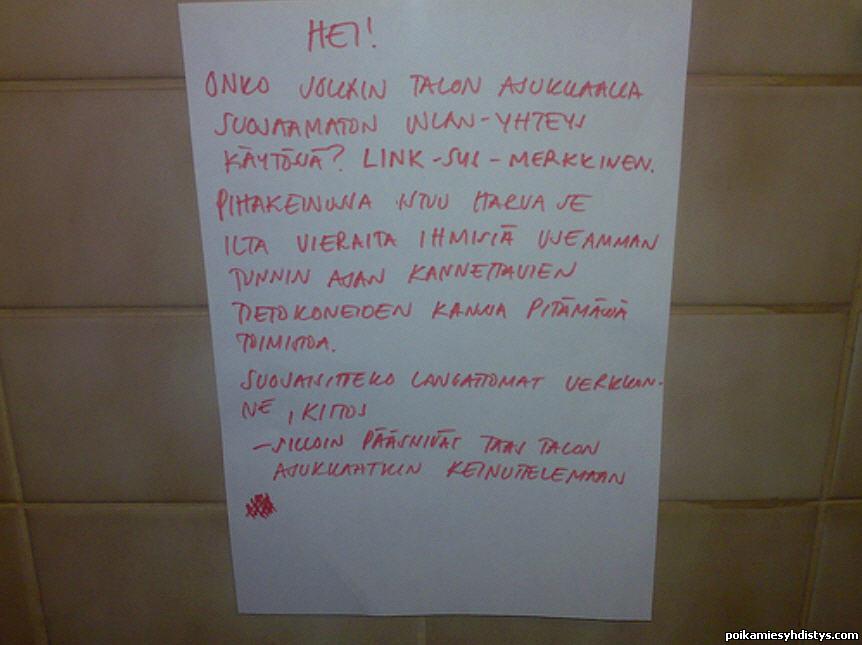 HEI!
ONKO JOLLAIN TALON ASUKKAALLA
SUOJAAMATON WLAN-YHTEYS
KÄYTÖSSÄ? LINK-SYS-MERKKINEN.
PIHAKEINUSSA ISTUU HARVA SE
ILTA VIERAITA IHMISIÄ USEAMMAN
TUNNIN AJAN KANNETTAVIEN
TIETOKONEIDEN KANSSA PITÄMÄSSÄ
TOIMISTOA.
SUOJAISITTEKO LANGATTOMAT VERKKON-
NE, KIITOS
-SILLOIN PÄÄSISIVÄT TAAS TALON
ASUKKAATKIN KEINUTTELEMAAN
poikamiesyhdistys.com